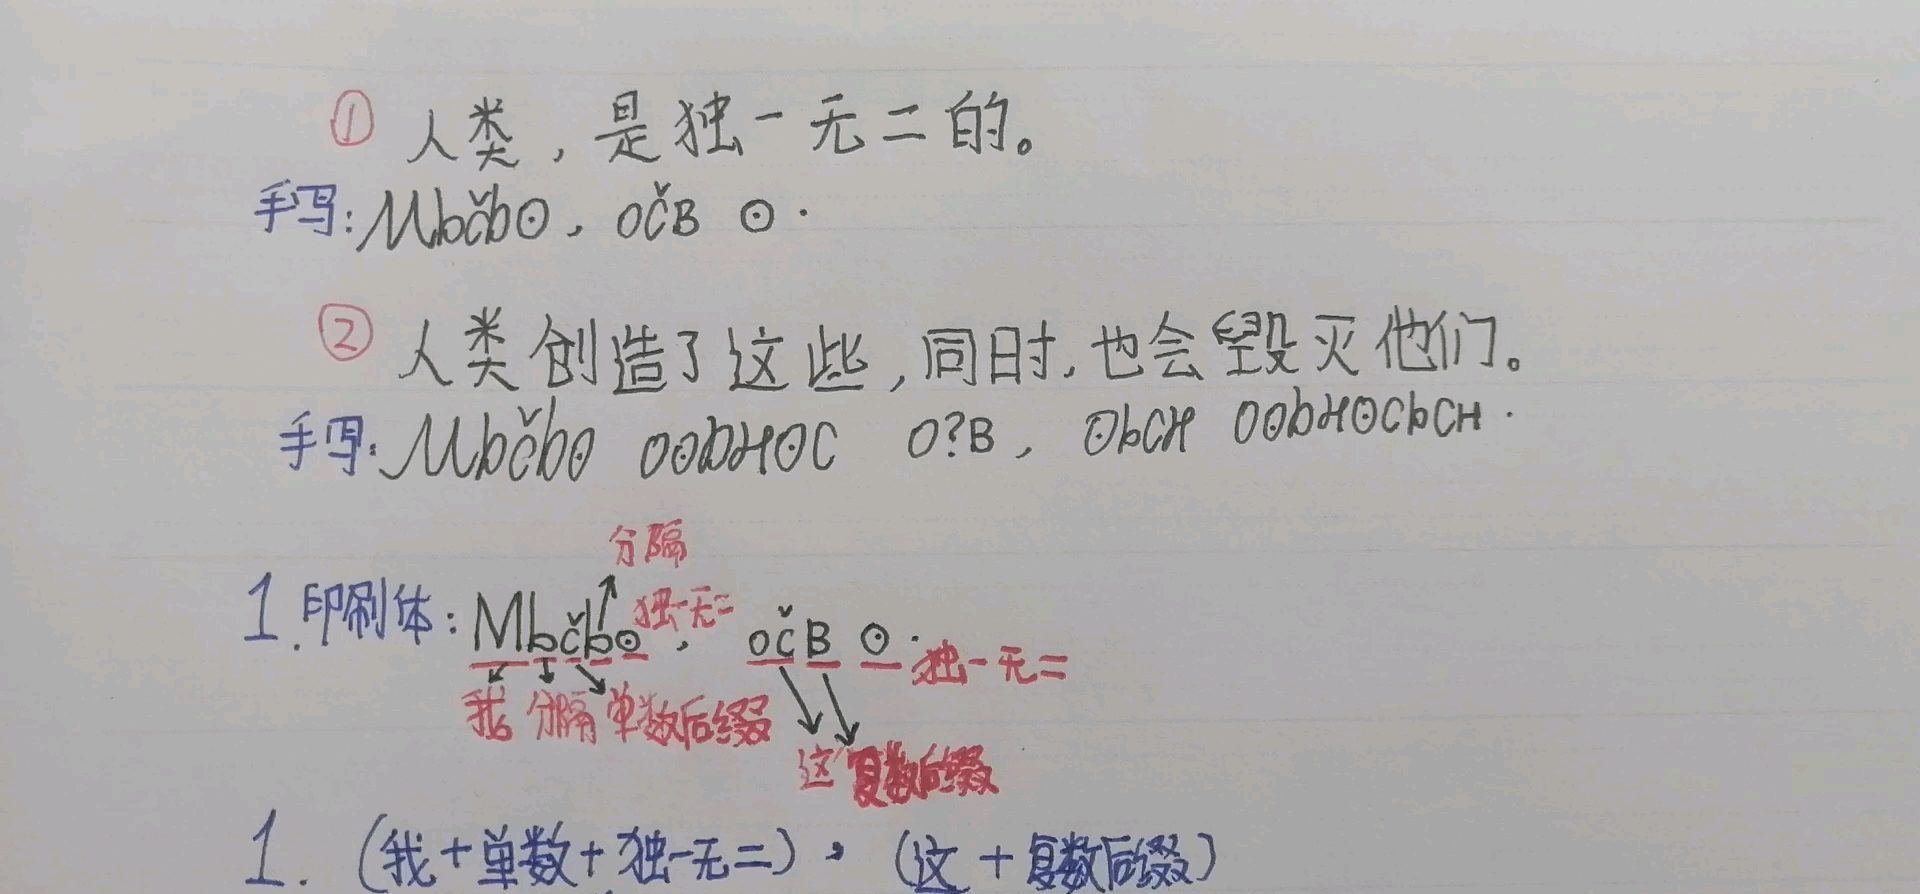 ① 人类，是独一无二的。
手写：Mbčbʘ, očB ʘ.
② 人类创造了这些，同时，也会毁灭他们。
手写：Mbčbʘ ʘʘbHʘC O?B, ʘbCH OʘbHʘCbCH.
分隔
1.印刷体：Mbčbʘ 独一无二, očB ʘ. 独一无二
我 分隔 单数后缀
这 复数后缀
1. (我+单数+独一无二), (这+复数后缀)